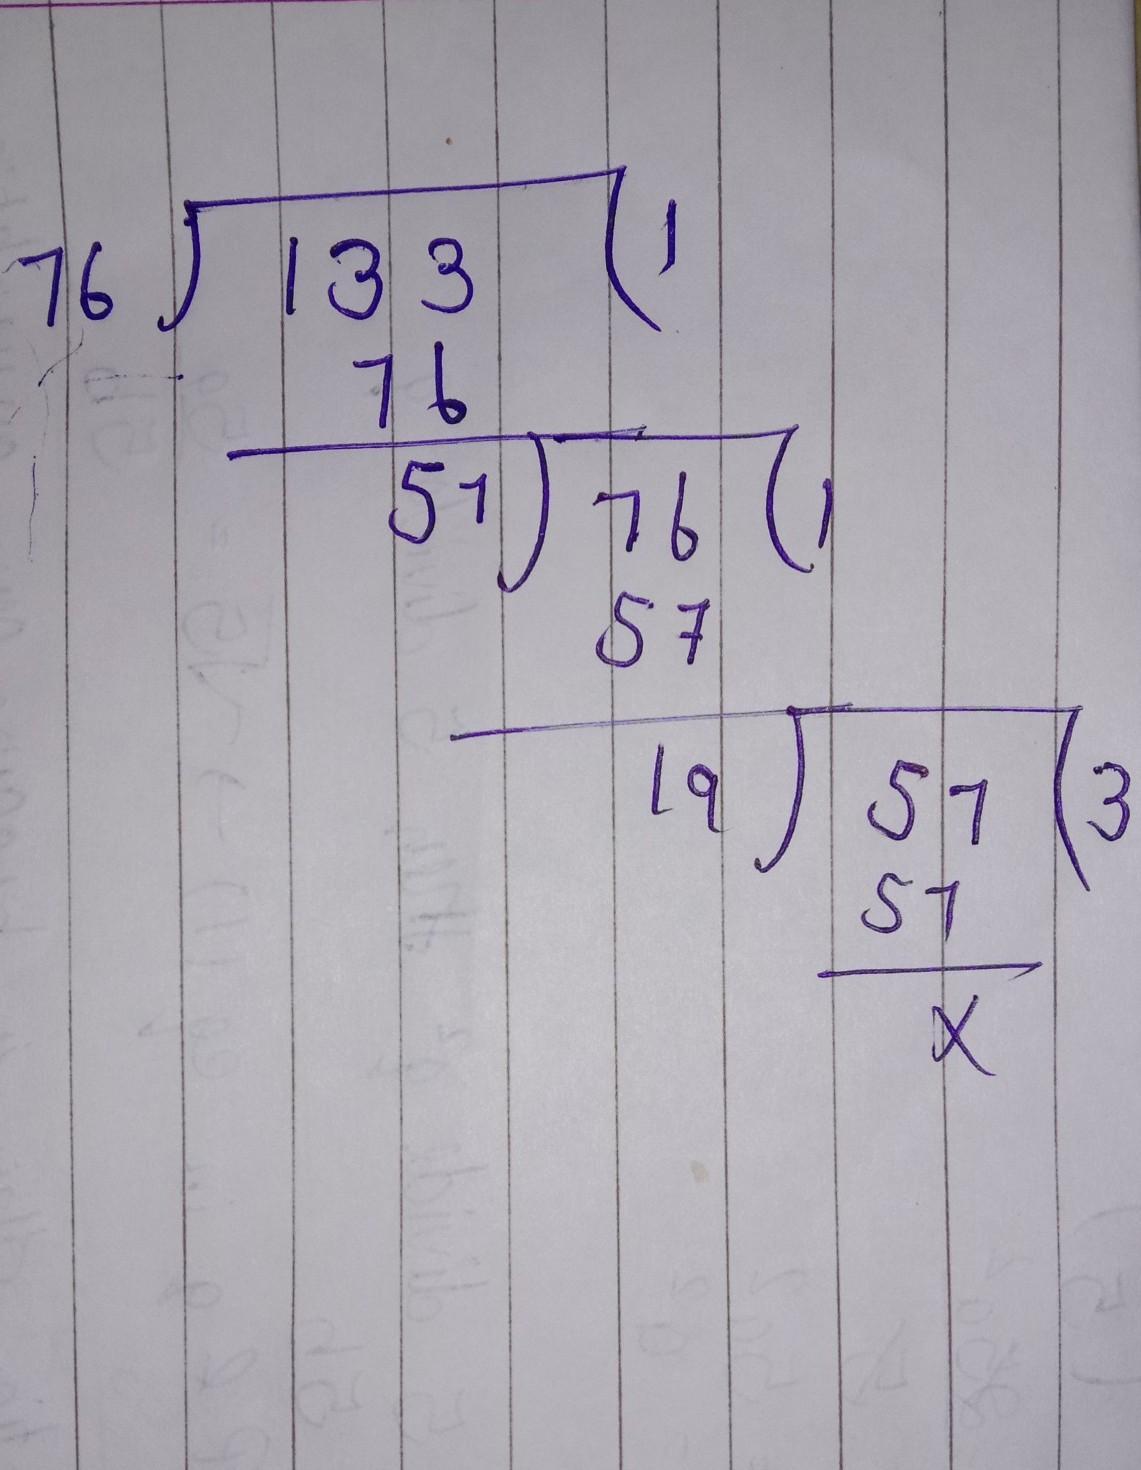 76 ) 133 ( 1
76
57 ) 76 ( 1
57
19 ) 57 ( 3
57
X